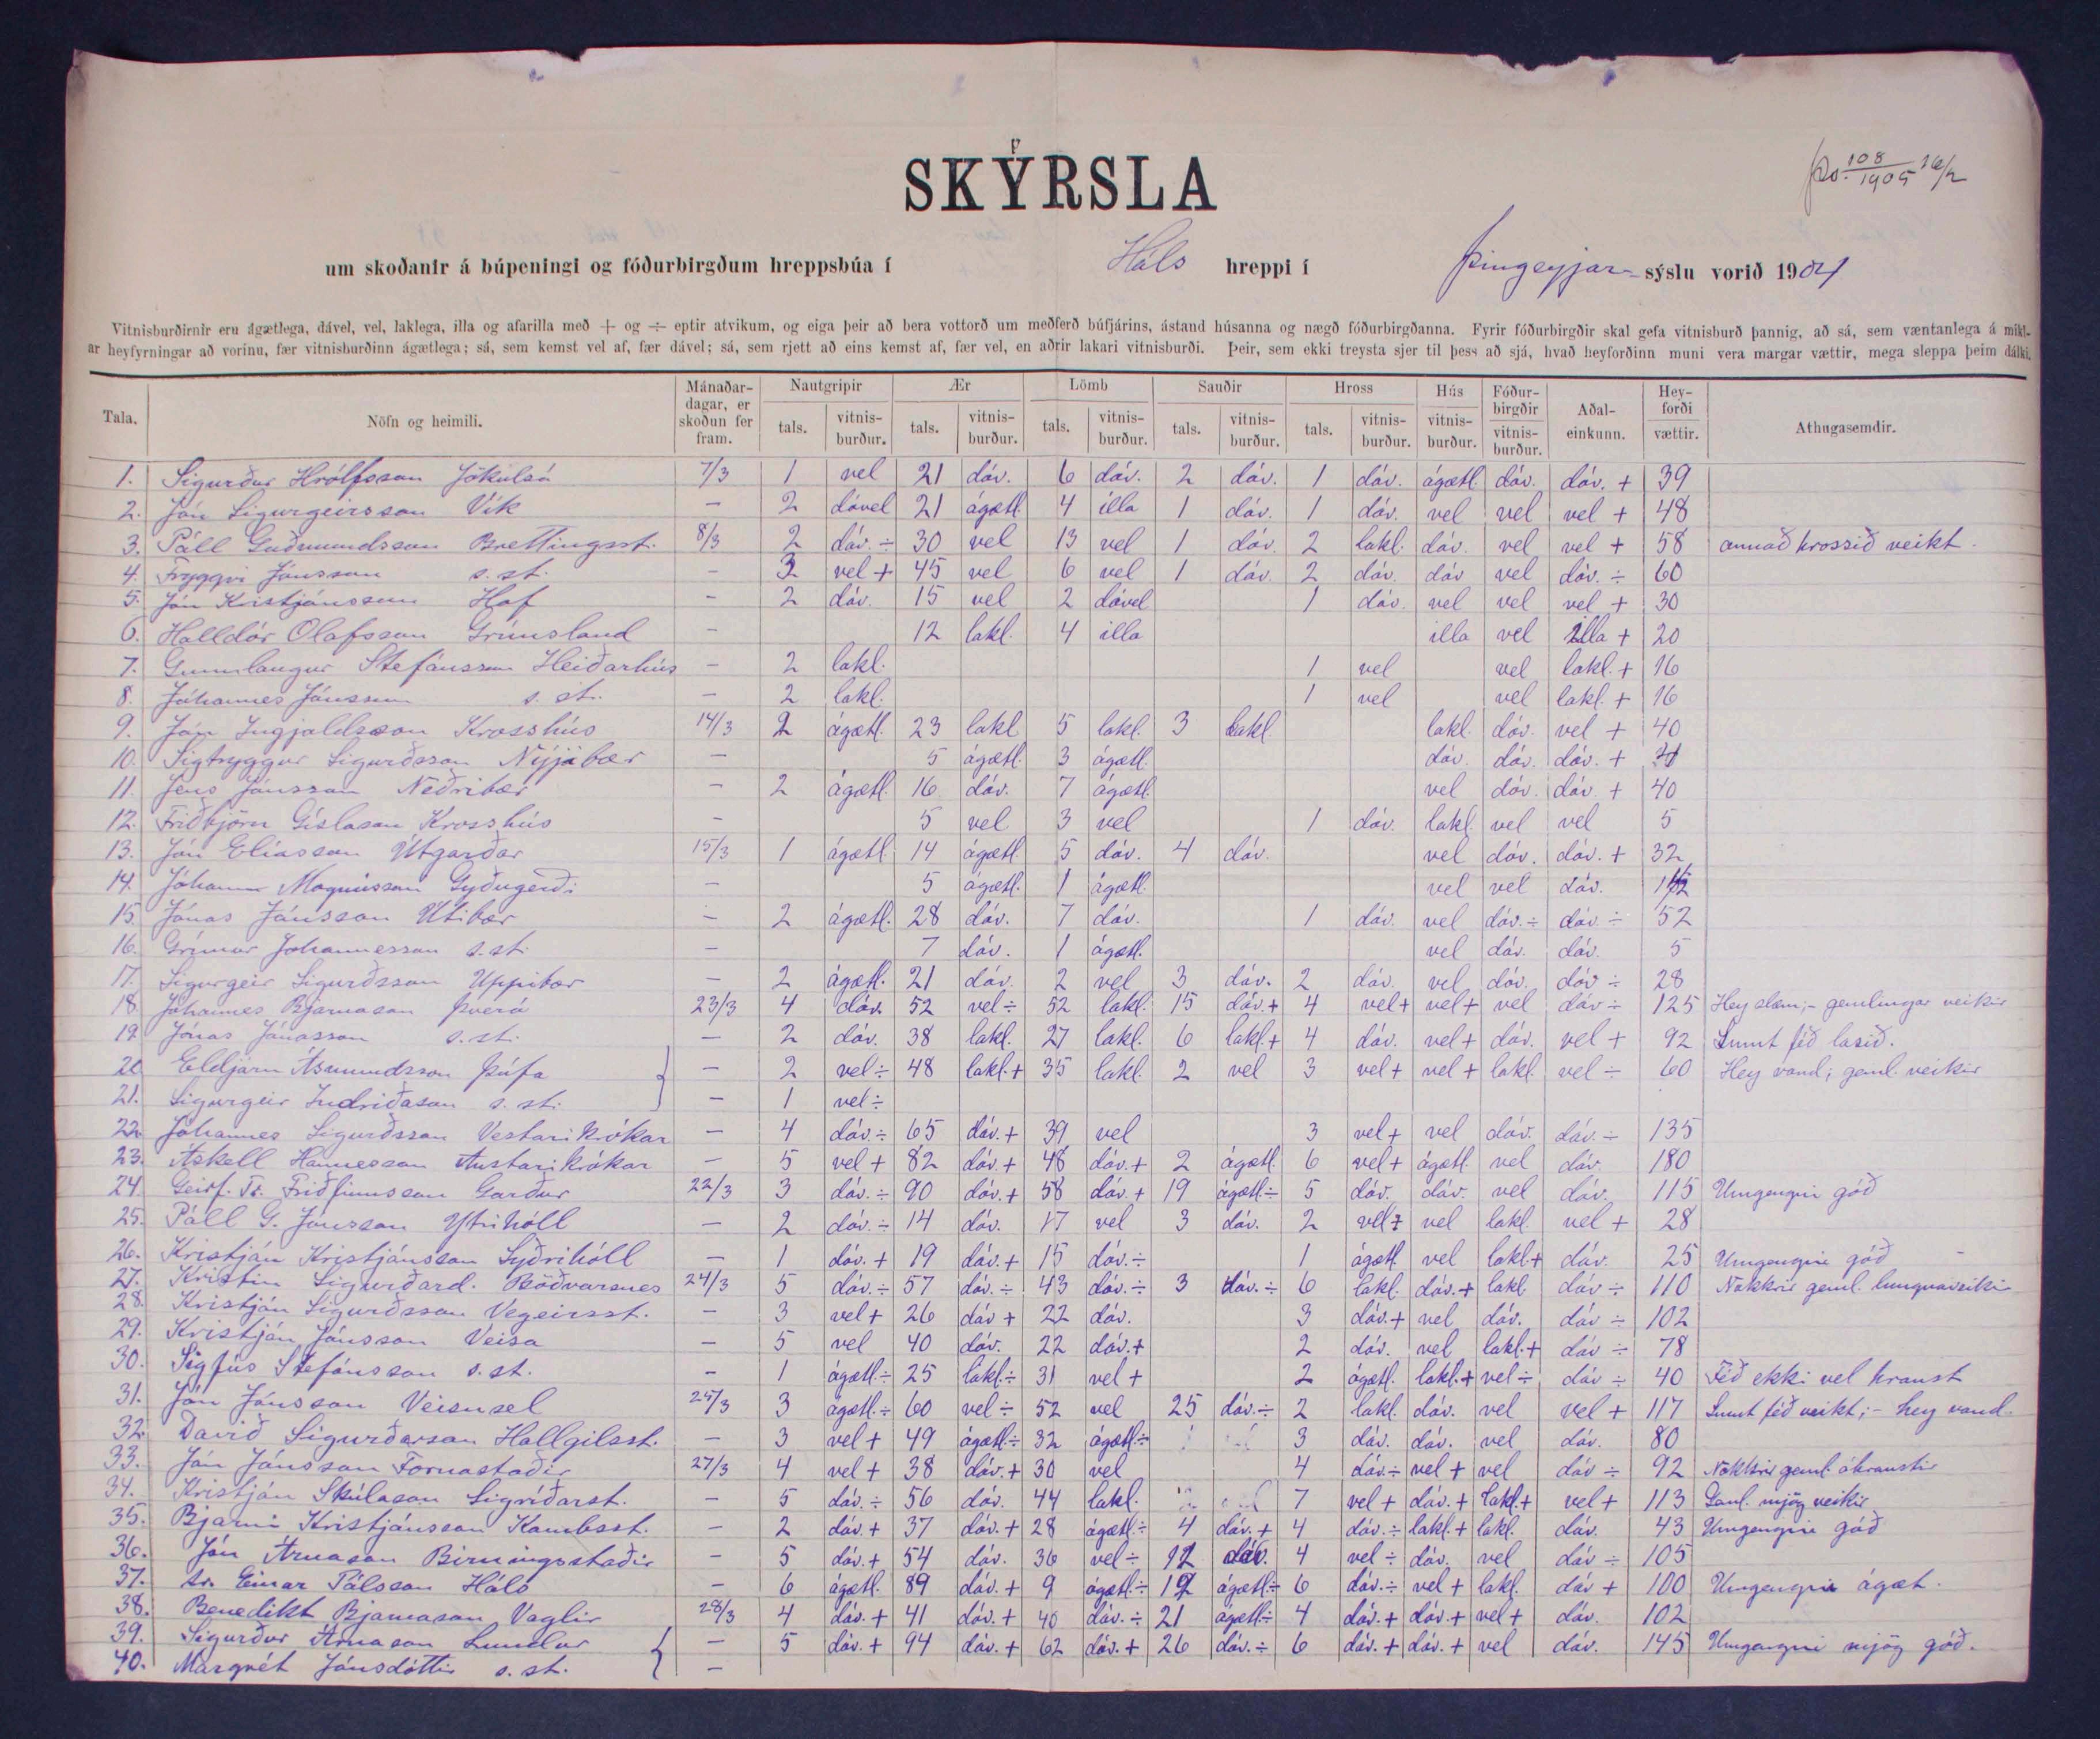 Þo. 108/1905 16/2
SKÝRSLA
um skoðanir á búpeningi og fóðurbirgðum hreppsbúa í Háls hreppi í Þingeyjar- sýslu vorið 1904
Vitnisburðirnir eru ágætlega, dável, vel, laklega, illa og afarilla með + og ÷ eptir atvikum, og eiga þeir að bera vottorð um meðferð búfjárins, ástand húsanna og nægð fóðurbirgðanna. Fyrir fóðurbirgðir skal gefa vitnisburð þannig, að sá, sem væntanlega á mikl-
ar heyfyrningar að vorinu, fær vitnisburðinn ágætlega; sá, sem kemst vel af, fær dável; sá, sem rjett að eins kemst af, fær vel, en aðrir lakari vitnisburði. Þeir, sem ekki treysta sjer til þess að sjá, hvað heyforðinn muni vera margar vættir, mega sleppa þeim dálki.
Tala. Nöfn og heimili. Mánaðar-dagar, er skoðun fer fram. Nautgripir tals. vitnis-burður. Ær tals. vitnis-burður. Lömb tals. vitnis-burður. Sauðir tals. vitnis-burður. Hross tals. vitnis-burður. Hús vitnis-burður. Fóður-birgðir vitnis-burður. Aðal-einkunn. Hey-forði vættir. Athugasemdir.
1. Sigurður Hrólfsson Jökulsá 7/3 1 vel 21 dáv. 6 dáv. 2 dáv. 1 dáv. ágætl. dáv. dáv. + 39
2. Jón Sigurgeirsson Vík — 2 dável 21 ágætl. 4 illa 1 dáv. 1 dáv. vel vel vel + 48
3. Páll Guðmundsson Brettingsst. 8/3 2 dáv. ÷ 30 vel 13 vel 1 dáv. 2 lakl. dáv. vel vel + 58 annað hrossið veikt.
4. Tryggvi Jónsson s. st. — 3 vel + 45 vel 6 vel 1 dáv. 2 dáv. dáv vel dáv. ÷ 60
5. Jón Kristjánsson Hof — 2 dáv. 15 vel 2 dável 1 dáv. vel vel vel + 30
6. Halldór Olafsson Grímsland — 12 lakl. 4 illa illa vel illa + 20
7. Gunnlaugur Stefánsson Heiðarhús — 2 lakl. 1 vel vel lakl. + 16
8. Jóhannes Jónsson s. st. — 2 lakl. 1 vel vel lakl. + 16
9. Jón Ingjaldsson Krosshús 14/3 2 ágætl. 23 lakl 5 lakl. 3 lakl lakl. dáv. vel + 40
10. Sigtryggur Sigurðsson Nýjibær — 5 ágætl. 3 ágætl. dáv. dáv. dáv. +
11. Jens Jónsson Neðribær — 2 ágætl. 16 dáv. 7 ágætl. vel dáv. dáv. + 40
12. Friðbjörn Gíslason Krosshús — 5 vel 3 vel 1 dáv. lakl. vel vel 5
13. Jón Elíasson Útgarðar 15/3 1 ágætl. 14 ágætl. 5 dáv. 4 dáv. vel dáv. dáv. + 32
14. Jóhann Magnússon Gyðugerði — 5 ágætl. 1 ágætl. vel vel dáv.
15. Jónas Jónsson Útibær — 2 ágætl. 28 dáv. 7 dáv. 1 dáv. vel dáv. ÷ dáv. ÷ 52
16. Grímur Jóhannesson s. st. — 7 dáv. 1 ágætl. vel dáv. dáv. 5
17. Sigurgeir Sigurðsson Uppibær — 2 ágætl. 21 dáv. 2 vel 3 dáv. 2 dáv. vel dáv. dáv ÷ 28
18. Jóhannes Bjarnason Þverá 23/3 4 dáv. 52 vel ÷ 52 lakl. 15 dáv. + 4 vel + vel + vel dáv ÷ 125 Hey slæm; - gemlingar veikir
19. Jónas Jónasson s. st. — 2 dáv. 38 lakl. 27 lakl. 6 lakl. + 4 dáv. vel + dáv. vel + 92 Sumt féð lasið.
20. Eldjárn Ásmundsson Þúfa — 2 vel ÷ 48 lakl. + 35 lakl. 2 vel 3 vel + vel + lakl. vel ÷ 60 Hey vond; geml. veikir
21. Sigurgeir Indriðason s. st. — 1 vel ÷
22. Jóhannes Sigurðsson Vestari Krókar — 4 dáv. ÷ 65 dáv. + 39 vel 3 vel + vel dáv. dáv. ÷ 135
23. Áskell Hannesson Austari Krókar — 5 vel + 82 dáv. + 48 dáv. + 2 ágætl. 6 vel + ágætl. vel dáv. 180
24. Geirf. Tr. Friðfinnsson Garður 22/3 3 dáv. ÷ 90 dáv. + 58 dáv. + 19 ágætl. ÷ 5 dáv. dáv. vel dáv. 115 Umgengni góð
25. Páll G. Jónsson Ytrihóll — 2 dáv. ÷ 14 dáv. 17 vel 3 dáv. 2 vel + vel lakl. vel + 28
26. Kristján Kristjánsson Syðrihóll — 1 dáv. + 19 dáv. + 15 dáv. ÷ 1 ágætl. vel lakl. + dáv. 25 Umgengni góð
27. Kristín Sigurðard. Böðvarsnes 24/3 5 dáv. ÷ 57 dáv. ÷ 43 dáv. ÷ 3 dáv. ÷ 6 lakl. dáv. + lakl. dáv ÷ 110 Nokkrir geml. lungnaveikir
28. Kristján Sigurðsson Vegeirsst. — 3 vel + 26 dáv + 22 dáv. 3 dáv. + vel dáv. dáv ÷ 102
29. Kristján Jónsson Veisa — 5 vel 40 dáv. 22 dáv. + 2 dáv. vel lakl. + dáv ÷ 78
30. Sigfús Stefánsson s. st. — 1 ágætl. ÷ 25 lakl. ÷ 31 vel + 2 ágætl. lakl. + vel ÷ dáv ÷ 40 Féð ekki vel hraust
31. Jón Jónsson Veisusel 25/3 3 ágætl. ÷ 60 vel ÷ 52 vel 25 dáv. ÷ 2 lakl. dáv. vel vel + 117 Sumt féð veikt; - hey vond.
32. Davíð Sigurðarson Hallgilsst. — 3 vel + 49 ágætl. ÷ 32 ágætl. ÷ 3 dáv. dáv. vel dáv. 80
33. Jón Jónsson Fornastaðir 27/3 4 vel + 38 dáv. + 30 vel 4 dáv. ÷ vel + vel dáv ÷ 92 Nokkrir geml. óhraustir
34. Kristján Skúlason Sigríðarst. — 5 dáv. ÷ 56 dáv. 44 lakl. 7 vel + dáv. + lakl. + vel + 113 Geml. mjög veikir
35. Bjarni Kristjánsson Kambsst. — 2 dáv. + 37 dáv. + 28 ágætl. ÷ 4 dáv. + 4 dáv. ÷ lakl. + lakl. dáv. 43 Umgengni góð
36. Jón Árnason Birningsstaðir — 5 dáv. + 54 dáv. 36 vel ÷ 12 dáv. 4 vel ÷ dáv. vel dáv ÷ 105
37. sr. Einar Pálsson Háls — 6 ágætl. 89 dáv. + 9 ágætl. ÷ 12 ágætl. ÷ 6 dáv. ÷ vel + lakl. dáv + 100 Umgengni ágæt.
38. Benedikt Bjarnason Vaglir 28/3 4 dáv. + 41 dáv. + 40 dáv. ÷ 21 ágætl. ÷ 4 dáv. + dáv. + vel + dáv. 102
39. Sigurður Árnason Lundur — 5 dáv. + 94 dáv. + 62 dáv. + 26 dáv. ÷ 6 dáv. + dáv. + vel dáv. 145 Umgengni mjög góð.
40. Margrét Jónsdóttir s. st. —